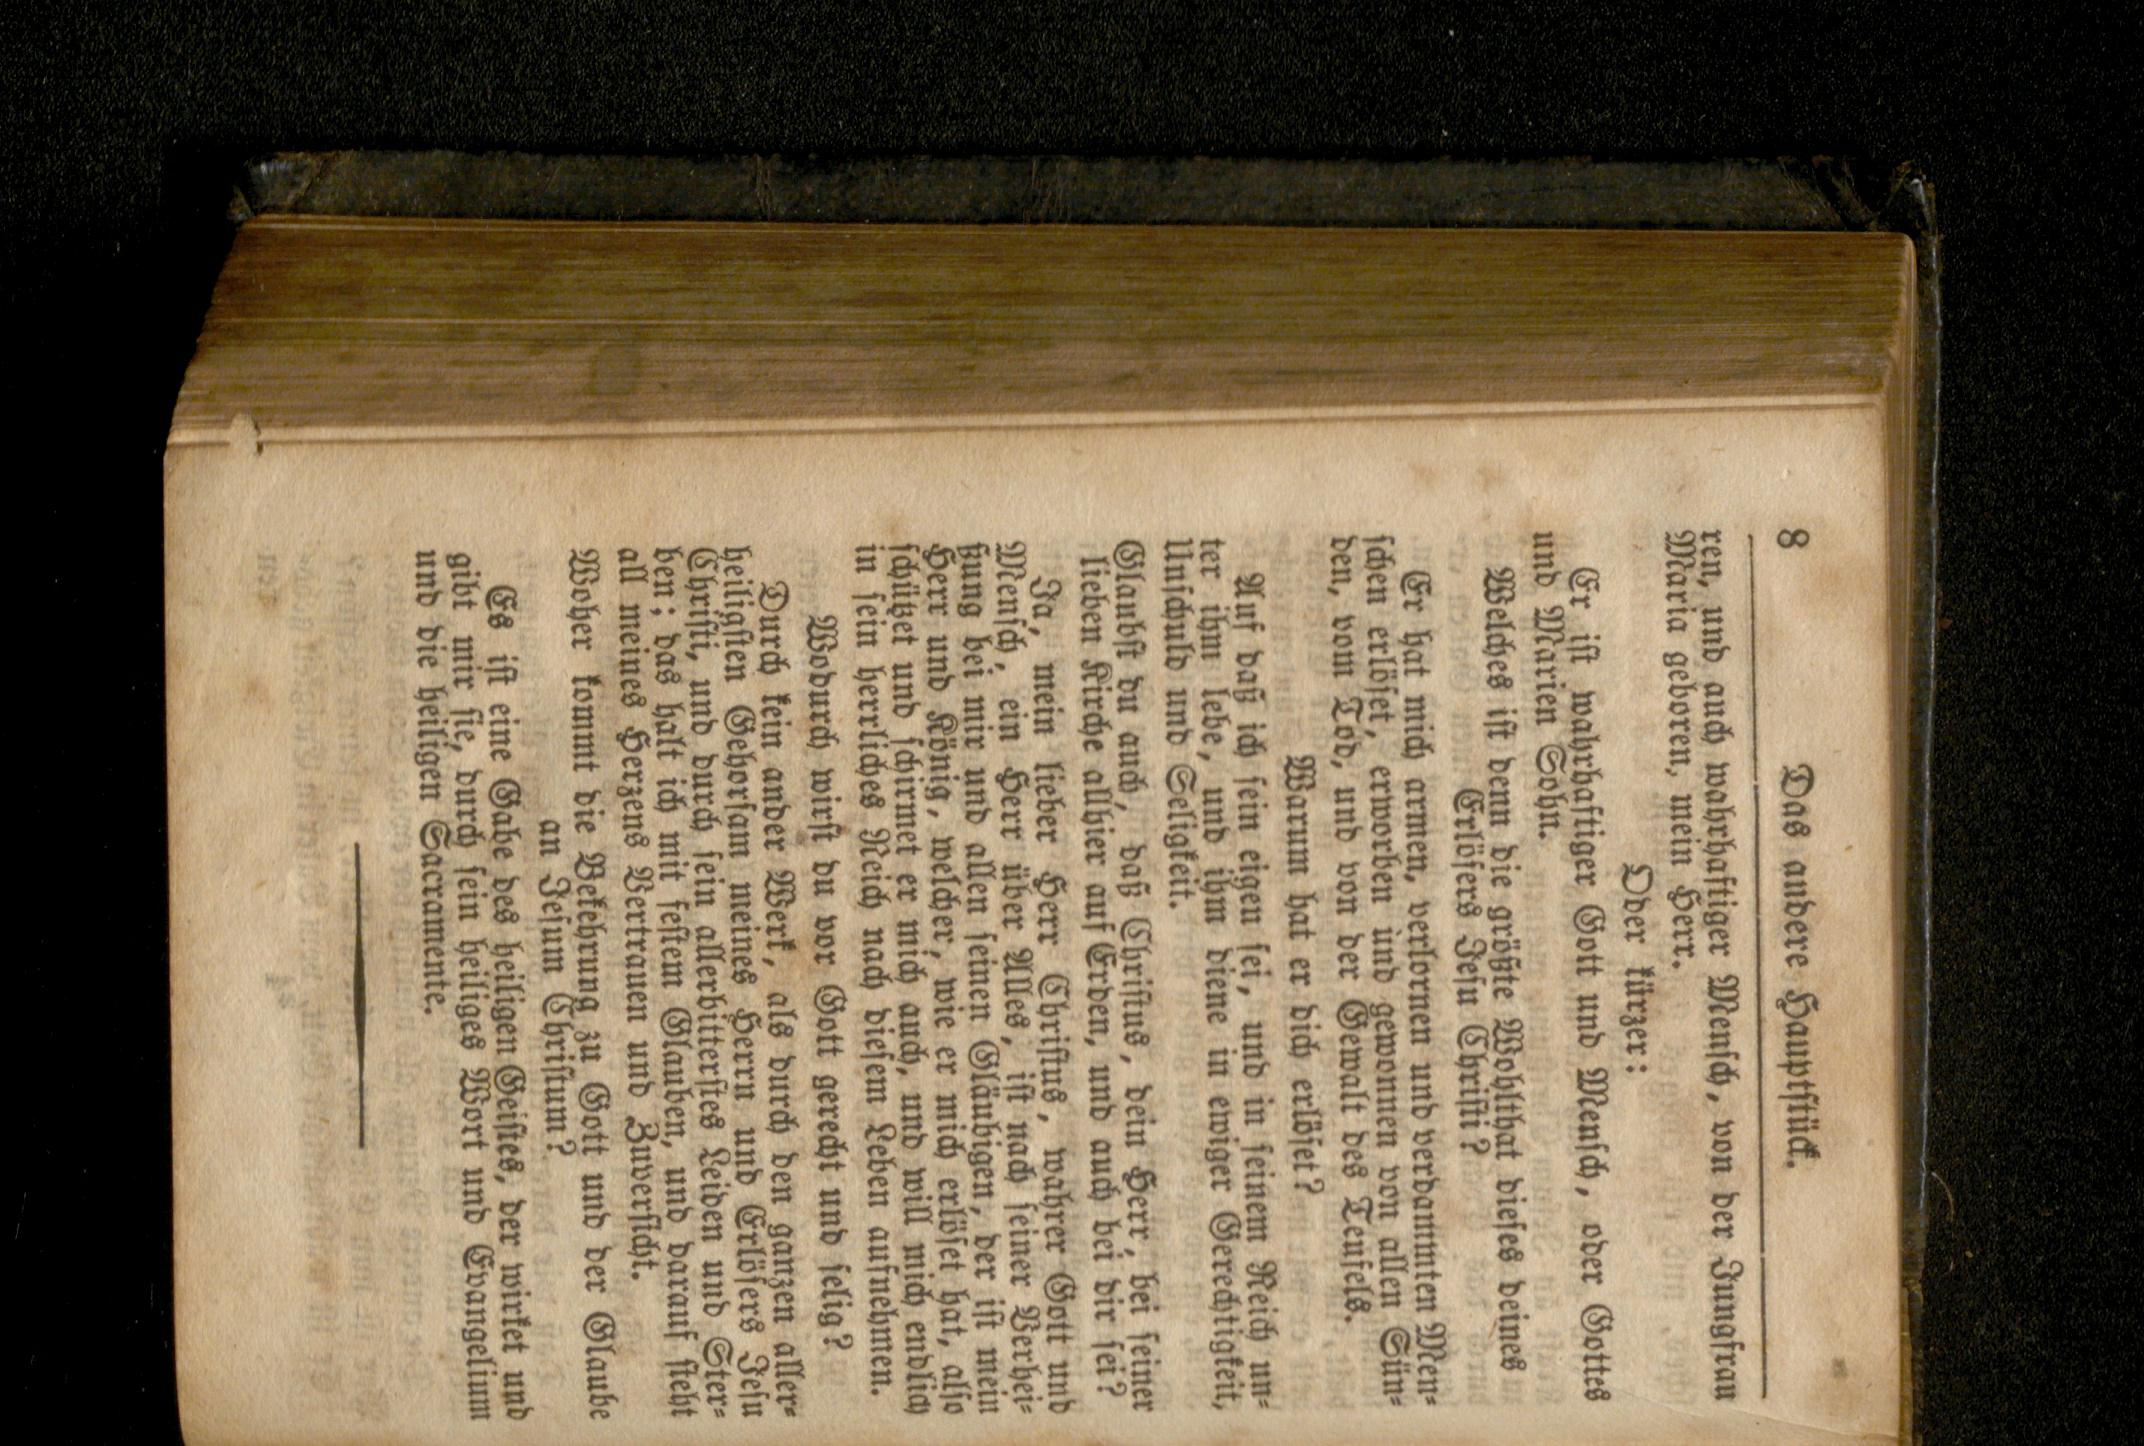 8 Das andere Hauptstück.
ren, und auch wahrhaftiger Mensch, von der Jungfrau
Maria geboren, mein Herr.
Oder kürzer:
Er ist wahrhaftiger Gott und Mensch, oder Gottes
und Marien Sohn.
Welches ist denn die größte Wohlthat dieses deines
Erlösers Jesu Christi?
Er hat mich armen, verlornen und verdammten Men-
schen erlöset, erworben und gewonnen von allen Sün-
den, vom Tod, und von der Gewalt des Teufels.
Warum hat er dich erlöset?
Auf daß ich sein eigen sei, und in seinem Reich un-
ter ihm lebe, und ihm diene in ewiger Gerechtigkeit,
Unschuld und Seligkeit.
Glaubst du auch, daß Christus, dein Herr, bei seiner
lieben Kirche allhier auf Erden, und auch bei dir sei?
Ja, mein lieber Herr Christus, wahrer Gott und
Mensch, ein Herr über Alles, ist nach seiner Verhei-
ßung bei mir und allen seinen Gläubigen, der ist mein
Herr und König, welcher, wie er mich erlöset hat, also
schützet und schirmet er mich auch, und will mich endlich
in sein herrliches Reich nach diesem Leben aufnehmen.
Wodurch wirst du vor Gott gerecht und selig?
Durch kein ander Werk, als durch den ganzen aller-
heiligsten Gehorsam meines Herrn und Erlösers Jesu
Christi, und durch sein allerbitterstes Leiden und Ster-
ben; das halt ich mit festem Glauben, und darauf steht
all meines Herzens Vertrauen und Zuversicht.
Woher kommt die Bekehrung zu Gott und der Glaube
an Jesum Christum?
Es ist eine Gabe des heiligen Geistes, der wirket und
gibt mir sie, durch sein heiliges Wort und Evangelium
und die heiligen Sacramente.